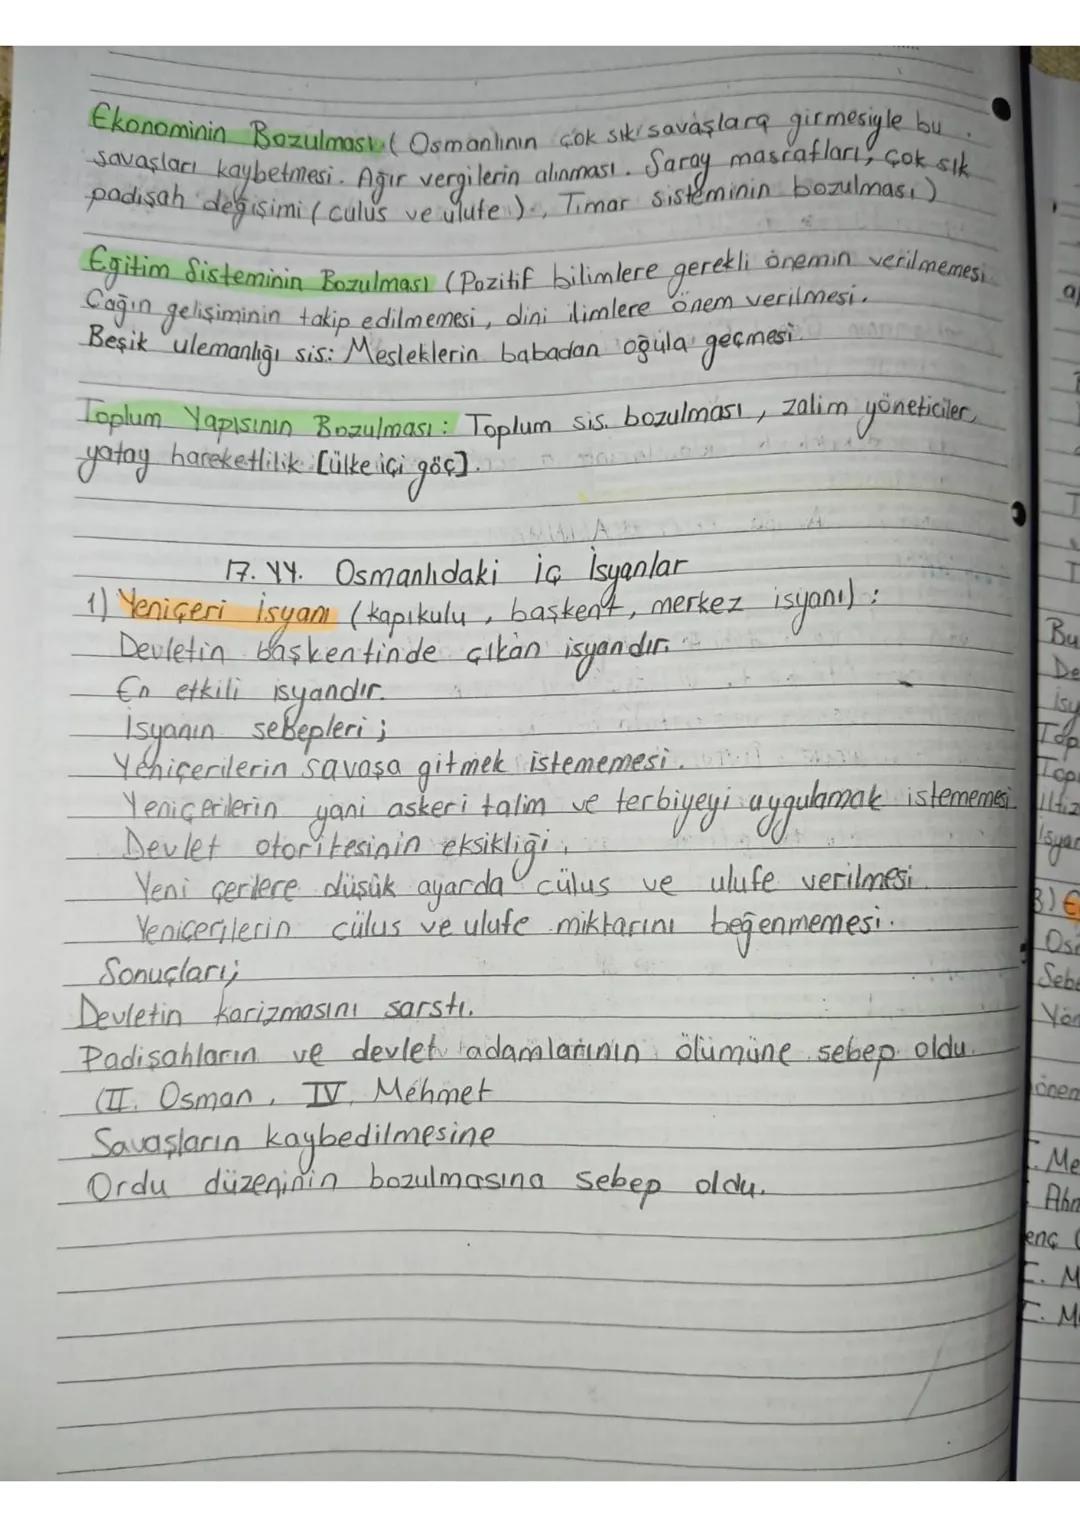 Ekonominin Bozulması ( Osmanlının çok sık savaşlara girmesiyle bu
savaşları kaybetmesi. Ağır vergilerin alınması. Saray masrafları, çok sık
padişah değişimi ( culüs ve ulufe ), Tımar sisteminin bozulması)
Eğitim Sisteminin Bozulması (Pozitif bilimlere gerekli önemin verilmemesi
Çağın gelişiminin takip edilmemesi, dini ilimlere önem verilmesi.
Beşik ulemanlığı sis: Mesleklerin babadan oğula geçmesi.
Toplum Yapısının Bozulması: Toplum sis. bozulması, zalim yöneticiler,
yatay hareketlilik [ülke içi göç].
17. YY. Osmanlıdaki iç İsyanlar
1) Yeniçeri İsyanı (kapıkulu, başkent, merkez isyanı) :
Devletin başkentinde çıkan isyandır.
En etkili isyandır.
İsyanın sebepleri;
Yeniçerilerin savaşa gitmek istememesi.
Yeniçerilerin yani askeri talim ve terbiyeyi uygulamak istememesi
Devlet otoritesinin eksikliği,
Yeni çerilere düşük ayarda cülus ve ulufe verilmesi
Yeniçerilerin cülus ve ulufe miktarını beğenmemesi.
Sonuçları;
Devletin karizmasını sarstı.
Padişahların ve devlet adamlarının ölümüne sebep oldu.
(II. Osman, IV. Mehmet
Savaşların kaybedilmesine
Ordu düzeninin bozulmasına sebep oldu.
Bu
De
isy
Top
Topr
iltiz
isyan
3) E
Osm
Sebe
Yön
önem
I. Me
Ahm
enç (
I. M
I. M